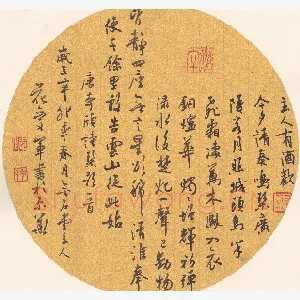 主人有酒歡
今夕請奏鳴琴廣
陵客月照城頭烏半
飛霜淒萬木風入衣
銅爐華燭燭增輝初彈
淥水後楚妃一聲已動物
皆靜四座無言星欲稀清淮奉
使千餘里敢告雲山從此始
唐李頎詩琴歌一首
歲在辛卯春月主人
軍書於京華